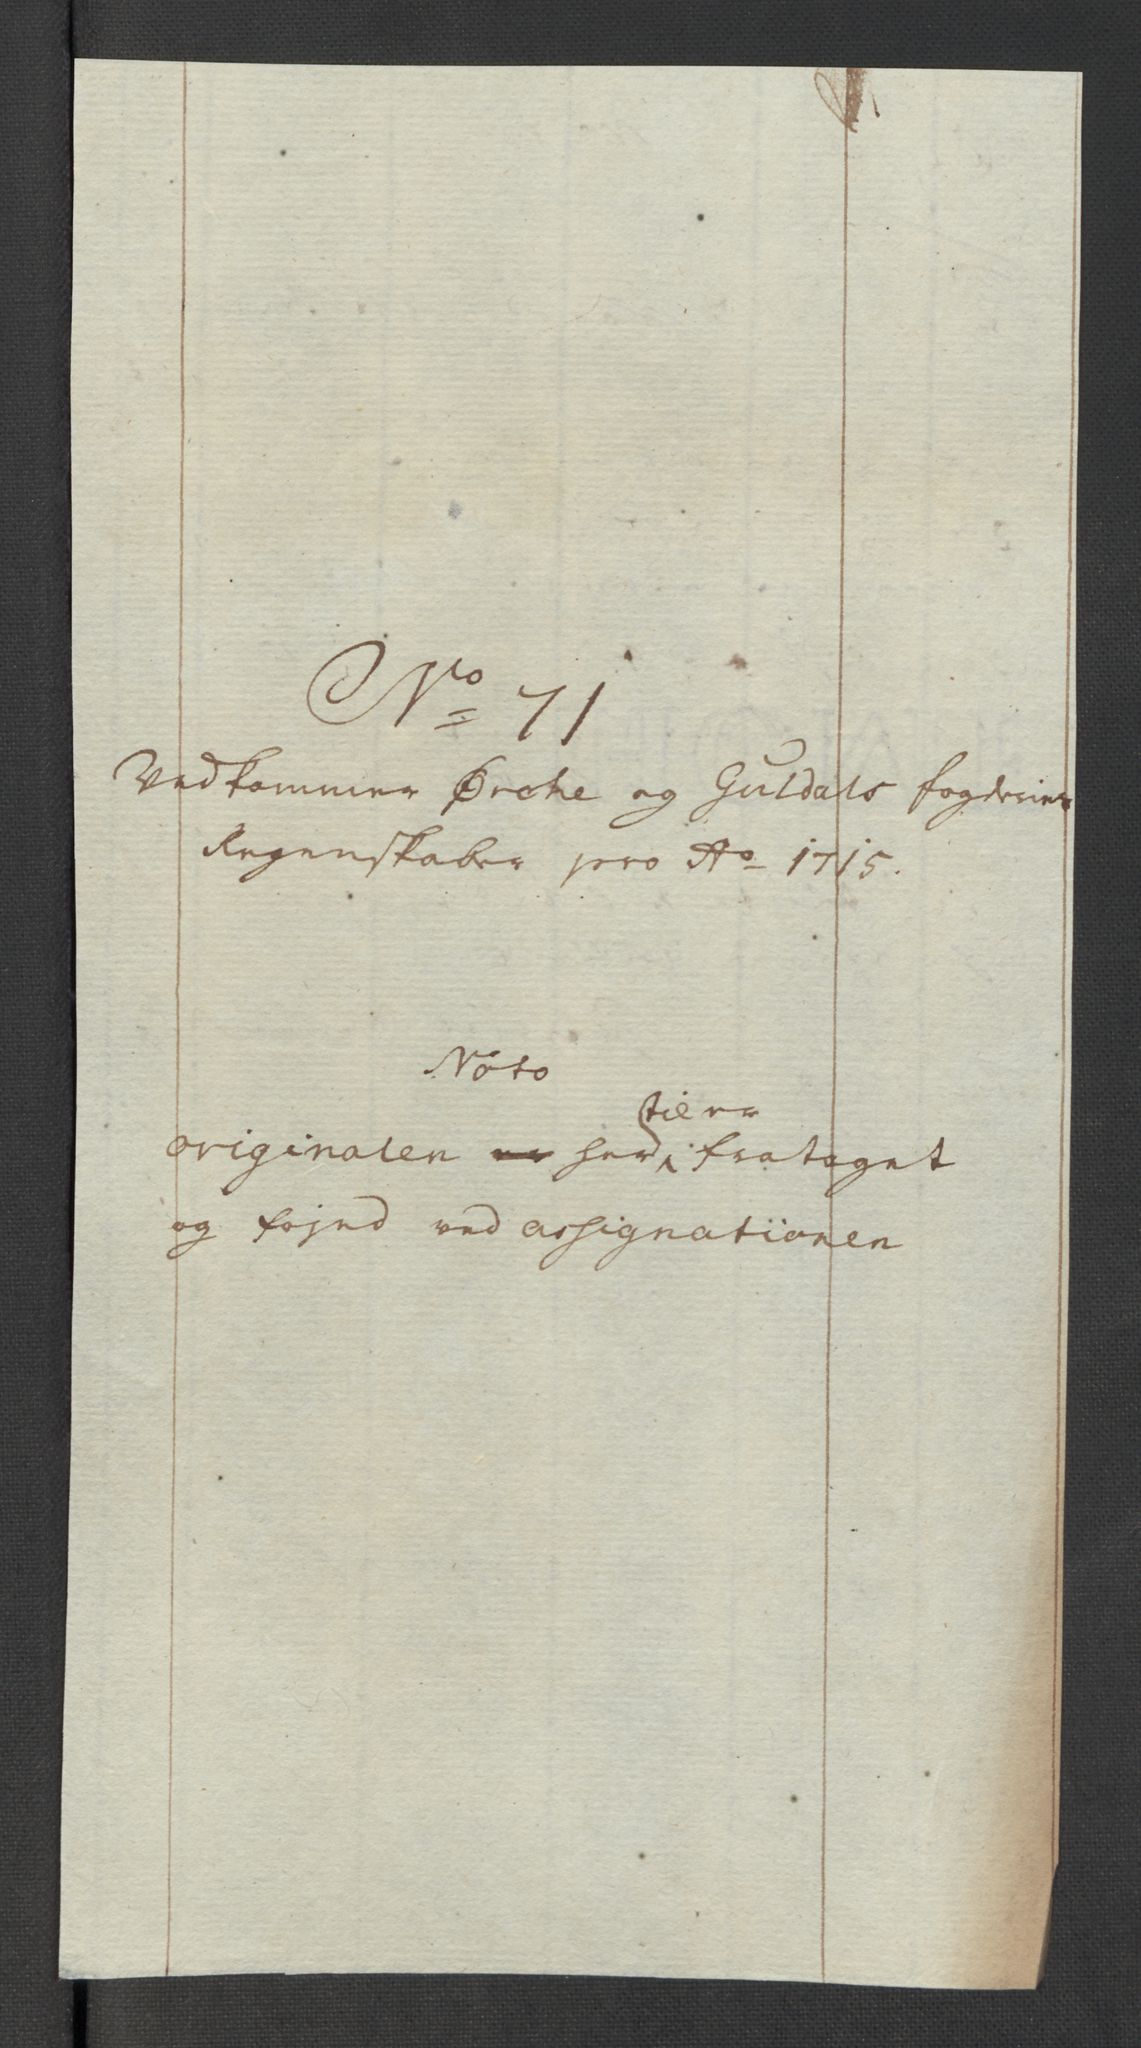 No 71
Vedkommer Ørche og Guldals fogderier
Regenskaber pro Ao 1715.
Noto
til er
originalen her frataget
og føjed ved assignationen